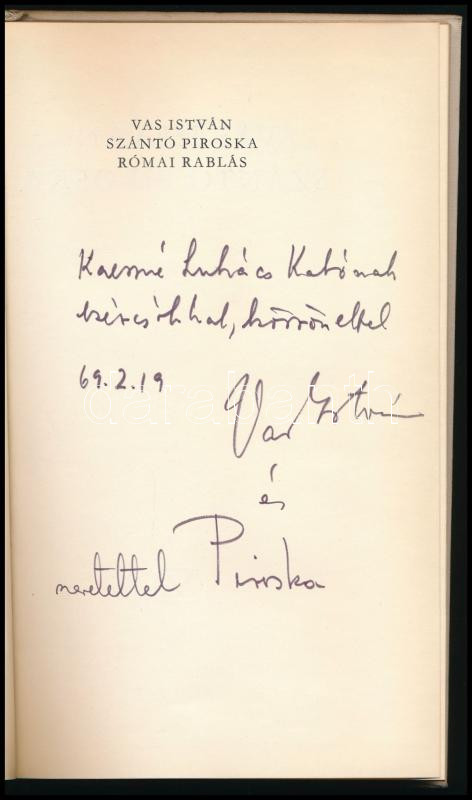 VAS ISTVÁN
SZÁNTÓ PIROSKA
RÓMAI RABLÁS
Lukács Katónak
kézcsókkal, köszönettel
69.2.19
Vas István
és
szeretettel Piroska
darabanth